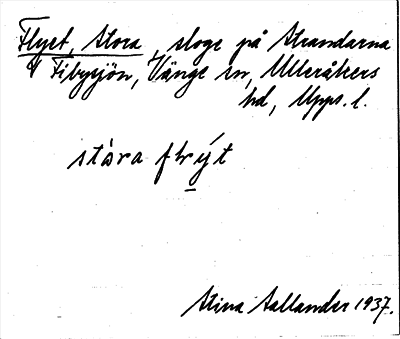 Flyet, Stora, sloge på Strandarna
Fibysjön, Vänge sn, Ulleråkers
hd, Upps. l.
Stina Sallander 1937.